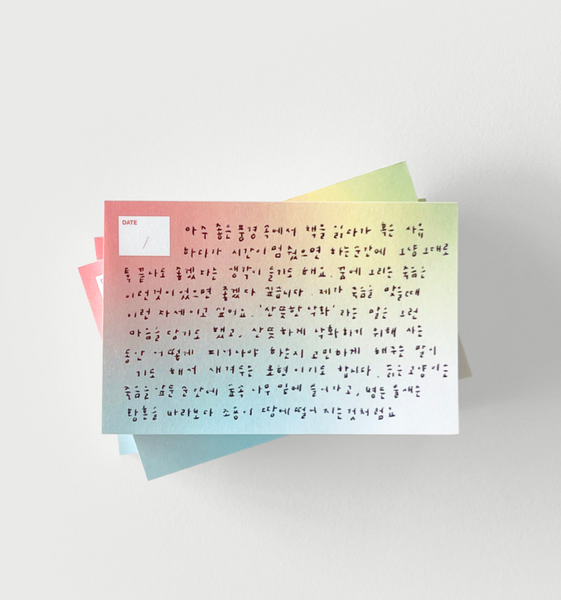 DATE
/
아주 좋은 풍경 속에서 책을 읽다가 혹은 사유
하다가 시간이 멈췄으면 하는 순간에 그냥 그대로
툭 끝나도 좋겠다는 생각이 들기도 해요. 꿈에 그리는 죽음은
이런 것이 있으면 좋겠다 싶습니다. 제가 죽음을 맞을 때
이런 자세이고 싶어요. '산뜻한 악화'라는 말은 그런
마음을 담기도 했고, 산뜻하게 악화하기 위해 사는
동안 어떻게 피어나야 하는지 고민하게 해주는 말이
기도 해서 새겨두는 표현이기도 합니다. 늙은 고양이는
죽음을 앞둔 순간에 숲속 나무 밑에 들어가고, 병든 물새는
황혼을 바라보다 소풍이 땅에 떨어지는 것처럼요